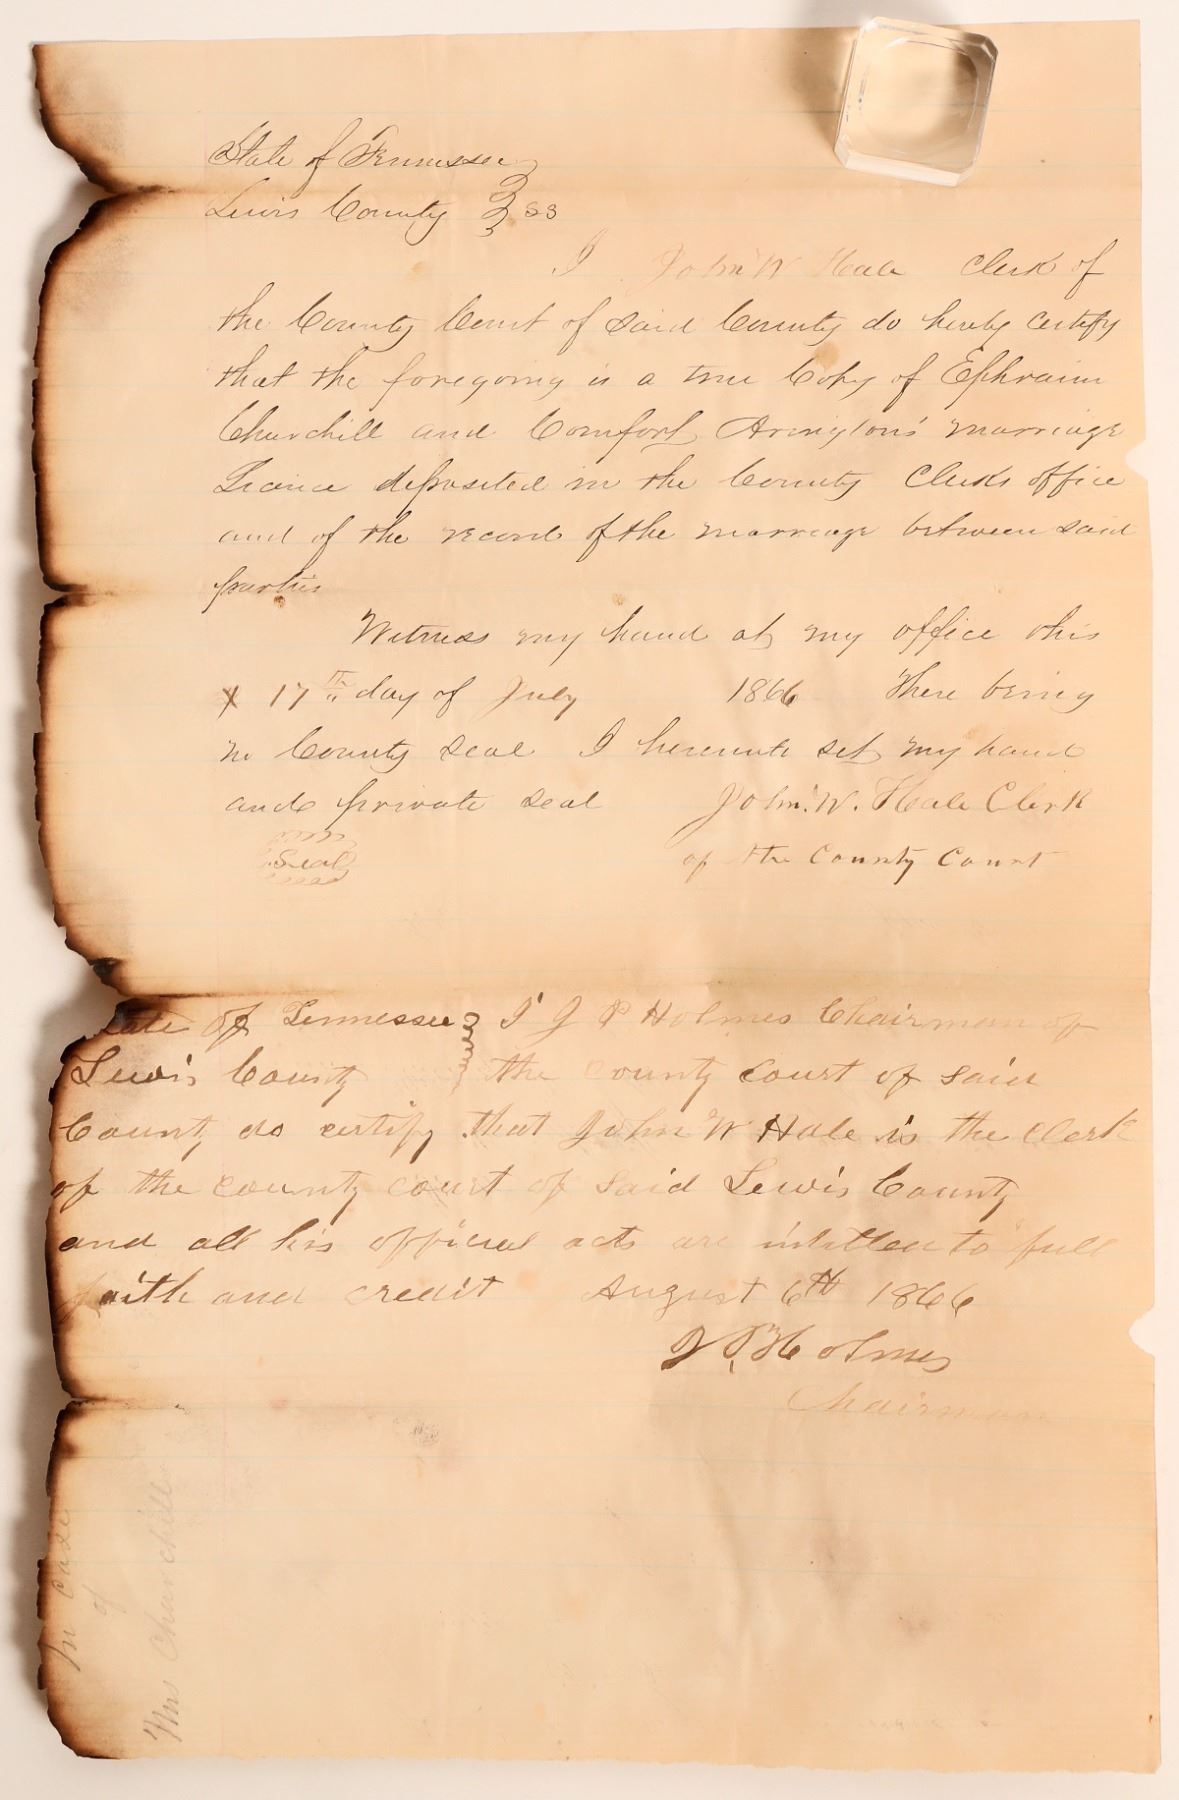 State of Tennessee
Lewis County } ss
I John W Hale Clerk of
the County Court of Said County do hereby certify
that the foregoing is a true Copy of Ephraim
Churchill and Comfort Arington's marriage
Licince deposited in the County Clerks office
and of the record of the marriage between said
parties
Witness my hand at my office this
X 17th day of July 1866 There being
no County Seal I hereunto set my hand
and private seal John. W. Hale Clerk
Seal of the County Court
tate of Tennessee } I J P Holmes Chairman of
Lewis County the county court of said
County do certify that John W Hale is the Clerk
of the county court of said Lewis County
and all his official acts are intitled to full
faith and credit August 6th 1866
J P Holmes
Chairman
In case
of
Mrs Churchill